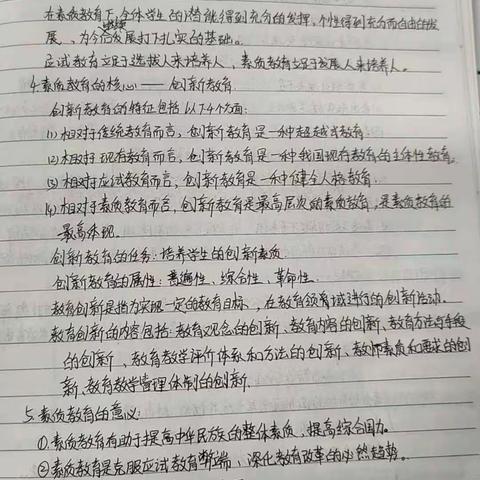 在素质教育下,全体学生的潜能得到充分的发挥,个性得到充分而自由的发
展、为今后继续发展打下扎实的基础。
应试教育立足于选拔人来培养人,素质教育立足于发展人来培养人。
4.素质教育的核心——创新教育.
创新教育的特征包括以下4个方面:
(1)相对于传统教育而言,创新教育是一种超越式教育.
(2)相对于现存教育而言,创新教育是一种我国现存教育的主体性教育.
(3)相对于应试教育而言,创新教育是一种健全人格教育.
(4)相对于素质教育而言,创新教育是最高层次的素质教育,是素质教育的
最高体现.
创新教育的任务:培养学生的创新素质.
创新教育的属性:普遍性、综合性、革命性.
教育创新是指为实现一定的教育目标,在教育领域进行的创新活动.
教育创新的内容包括:教育观念的创新、教育内容的创新、教育方法与手段
的创新、教育教学评价体系和方法的创新、教师素质和要求的创
新、教育教学管理体制的创新.
5.素质教育的意义:
①素质教育有助于提高中华民族的整体素质,提高综合国力。
②素质教育是克服应试教育弊端,深化教育改革的必然趋势。